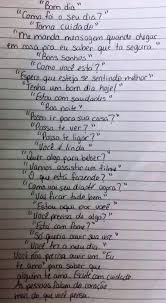 "Bom dia"
"Como foi o seu dia?"
"Toma cuidado"
"Me manda mensagem quando chegar
em casa pra eu saber que tá segura."
"Bons sonhos"
"Como você está?"
"Espero que esteja se sentindo melhor"
"Tenha um bom dia hoje!"
"Estou com saudades"
"Boa noite"
"Posso ir para sua casa?"
"Posso te ver?"
"Posso te ligar?"
"Você é linda"
"Quer algo para beber?"
"Vamos assistir um filme"
"O que está fazendo?"
"Como vai seu dia até agora?"
"Vai ficar tudo bem"
"Estou aqui por você"
"Você precisa de algo?"
"Está com fome?"
"Só queria ouvir sua voz"
"Você fez o meu dia"
Você não precisa ouvir um "Eu
te amo" para saber que
alguém te ama. Escute com cuidado.
As pessoas falam do coração
mais do que você pensa.